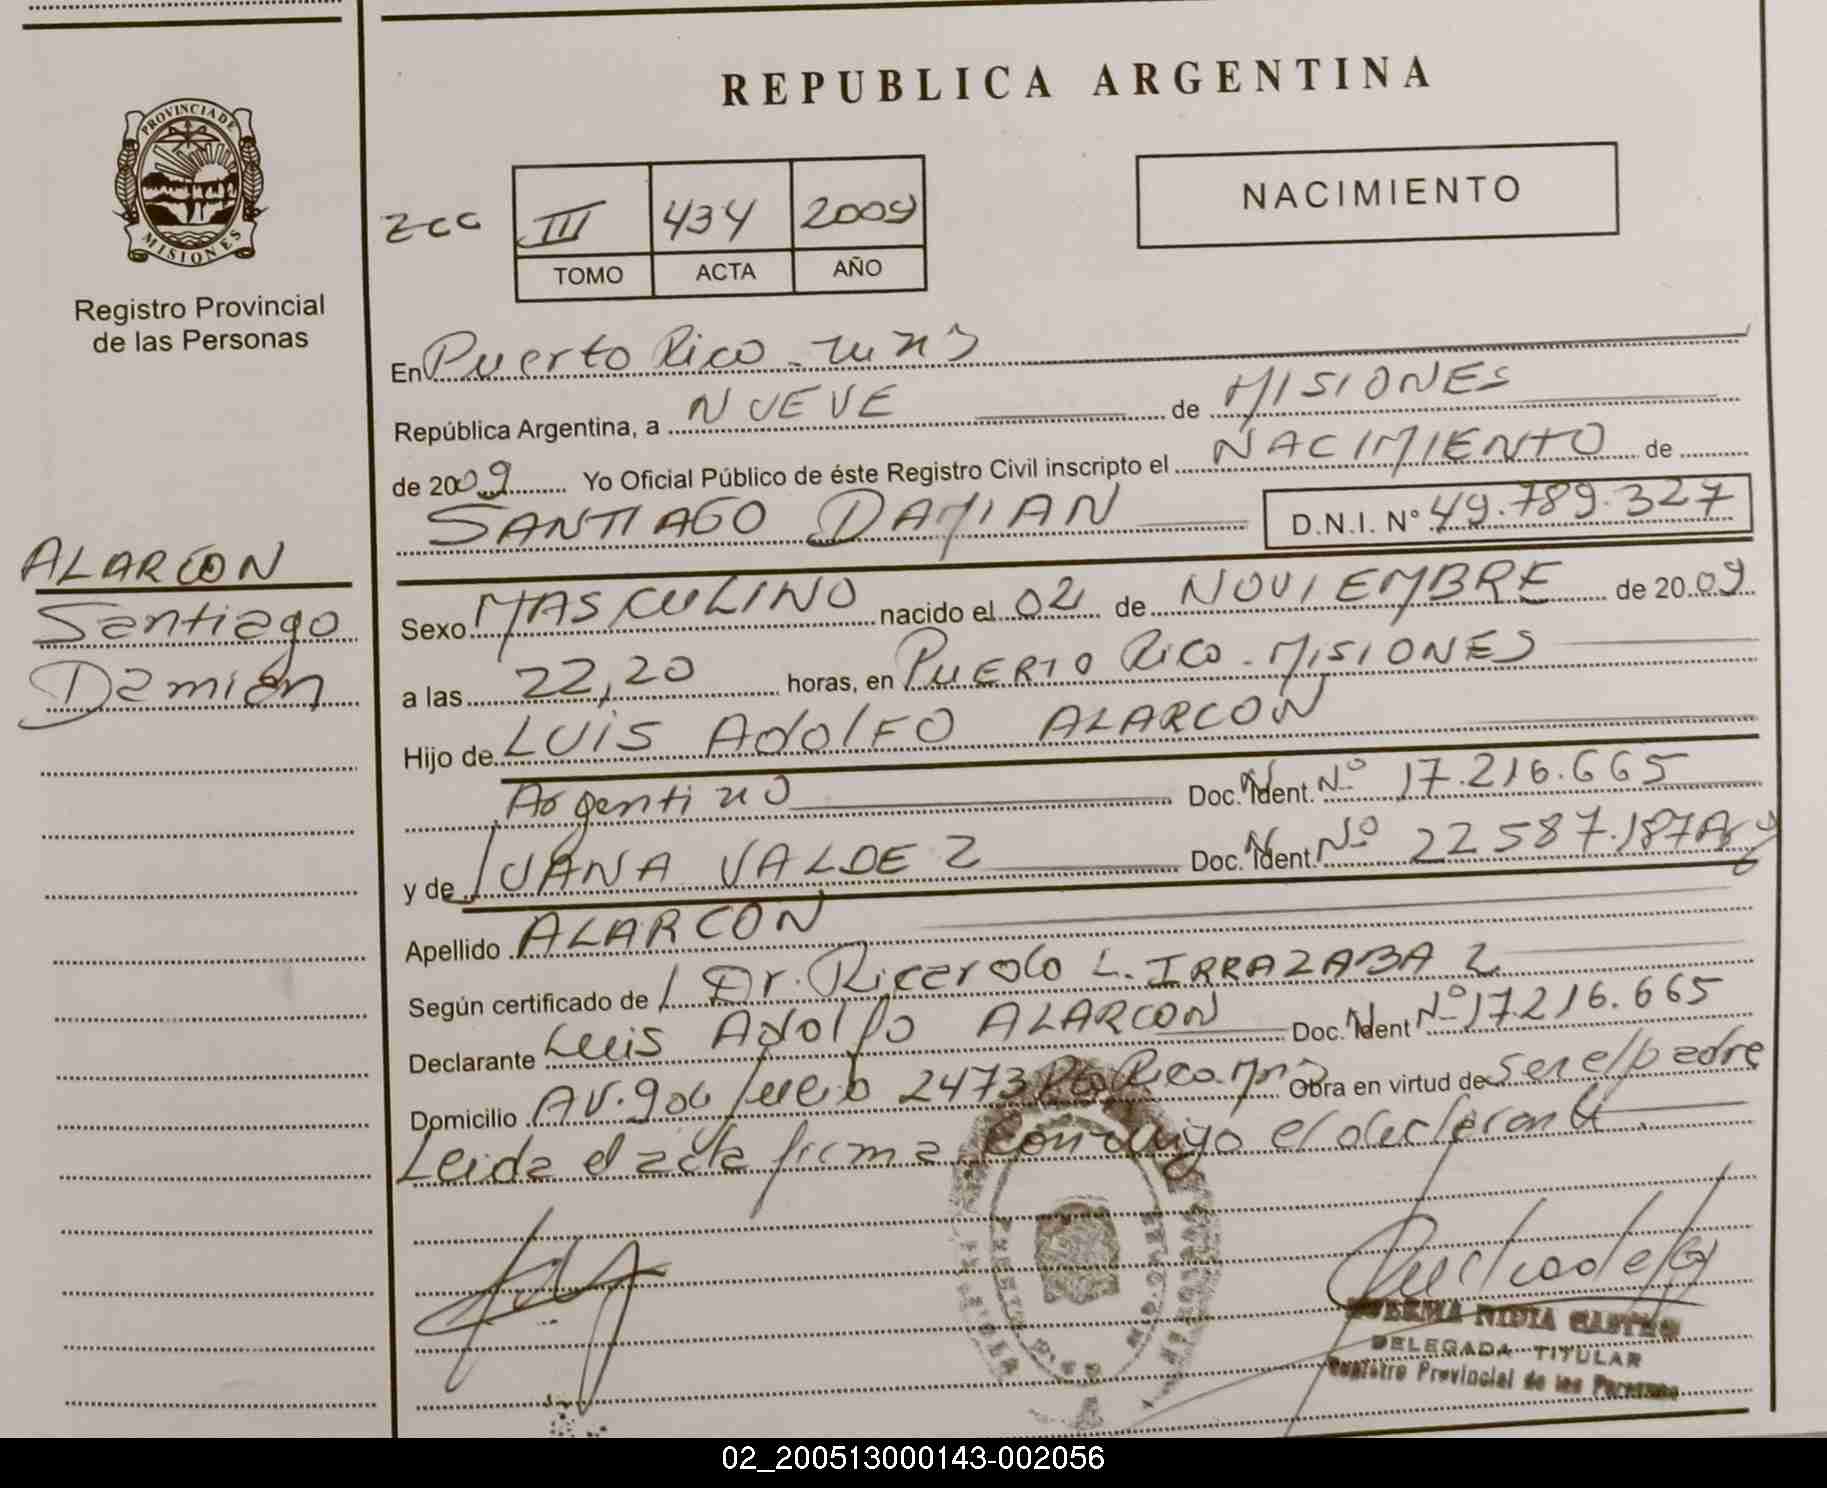 REPUBLICA ARGENTINA
PROVINCIA DE
MISIONES
Registro Provincial
de las Personas
NACIMIENTO
zcc III 434 2009
TOMO ACTA AÑO
En Puerto Rico
República Argentina, a NUEVE de MISIONES
de 2009 Yo Oficial Público de éste Registro Civil inscripto el NACIMIENTO de
SANTIAGO DAMIAN D.N.I. N° 49.789.327
ALARCON
Santiago
Damián
Sexo MASCULINO nacido el 02 de NOVIEMBRE de 2009
a las 22,20 horas, en PUERTO RICO - MISIONES
Hijo de LUIS AdolFO ALARCON
Argentino Doc. Ident. Nº 17.216.665
y de JUANA VALDEZ Doc. Ident. Nº 22587.187 Arg
Apellido ALARCON
Según certificado de Dr. Ricardo L. IRRAZABAL
Declarante Luis Adolfo ALARCON Doc. Ident Nº 17216.665
Domicilio AV. 9 de Julio 2473 Pto Rico. Mns Obra en virtud de ser el padre
Leida el acta firma conmigo el declarante.
NIDIA CASTRO
DELEGADA TITULAR
Registro Provincial de las Personas
02_200513000143-002056